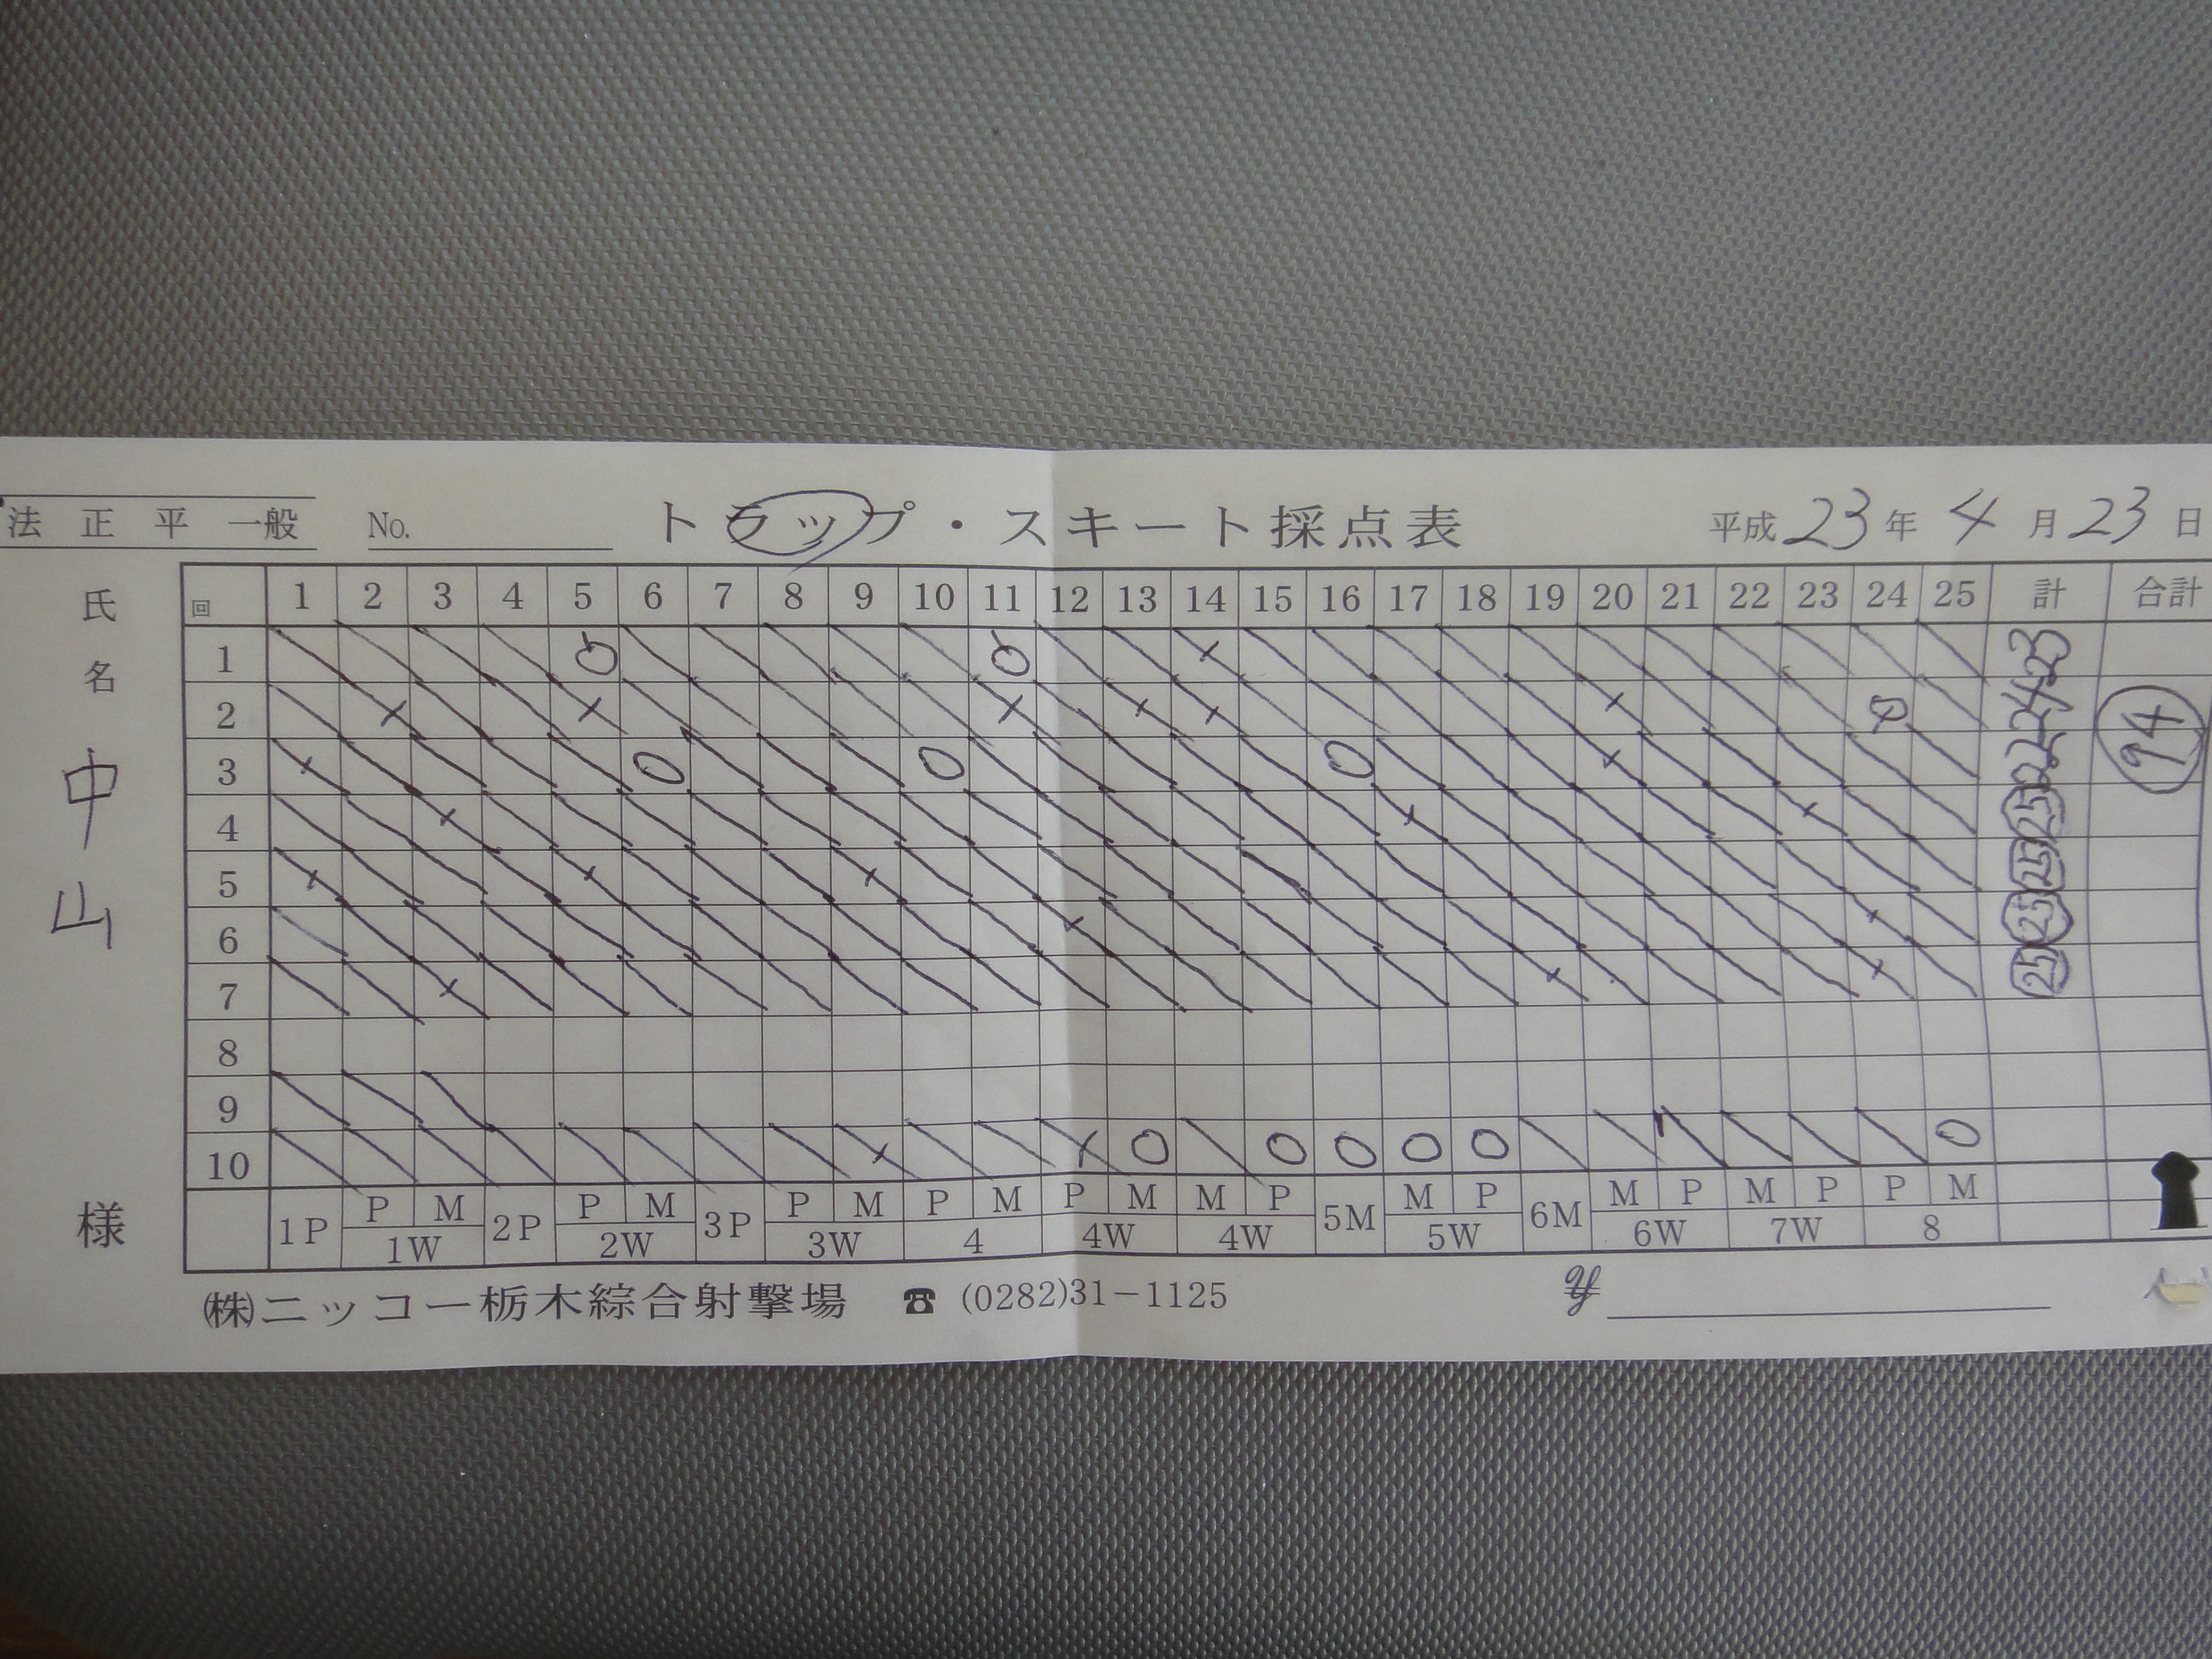 法 正 平 一般 No. トラップ・スキート採点表 平成23年 4月23日
氏名 中山 様
回 1 2 3 4 5 6 7 8 9 10 11 12 13 14 15 16 17 18 19 20 21 22 23 24 25 計 合計
1 23
2 24 94
3 22
4 25
5 25
6 25
7 25
8
9
10
P M P M P M P M P M M P M P M P M P P M
1P 1W 2P 2W 3P 3W 4 4W 4W 5M 5W 6M 6W 7W 8
㈱ニッコー栃木綜合射撃場 ☎ (0282)31-1125